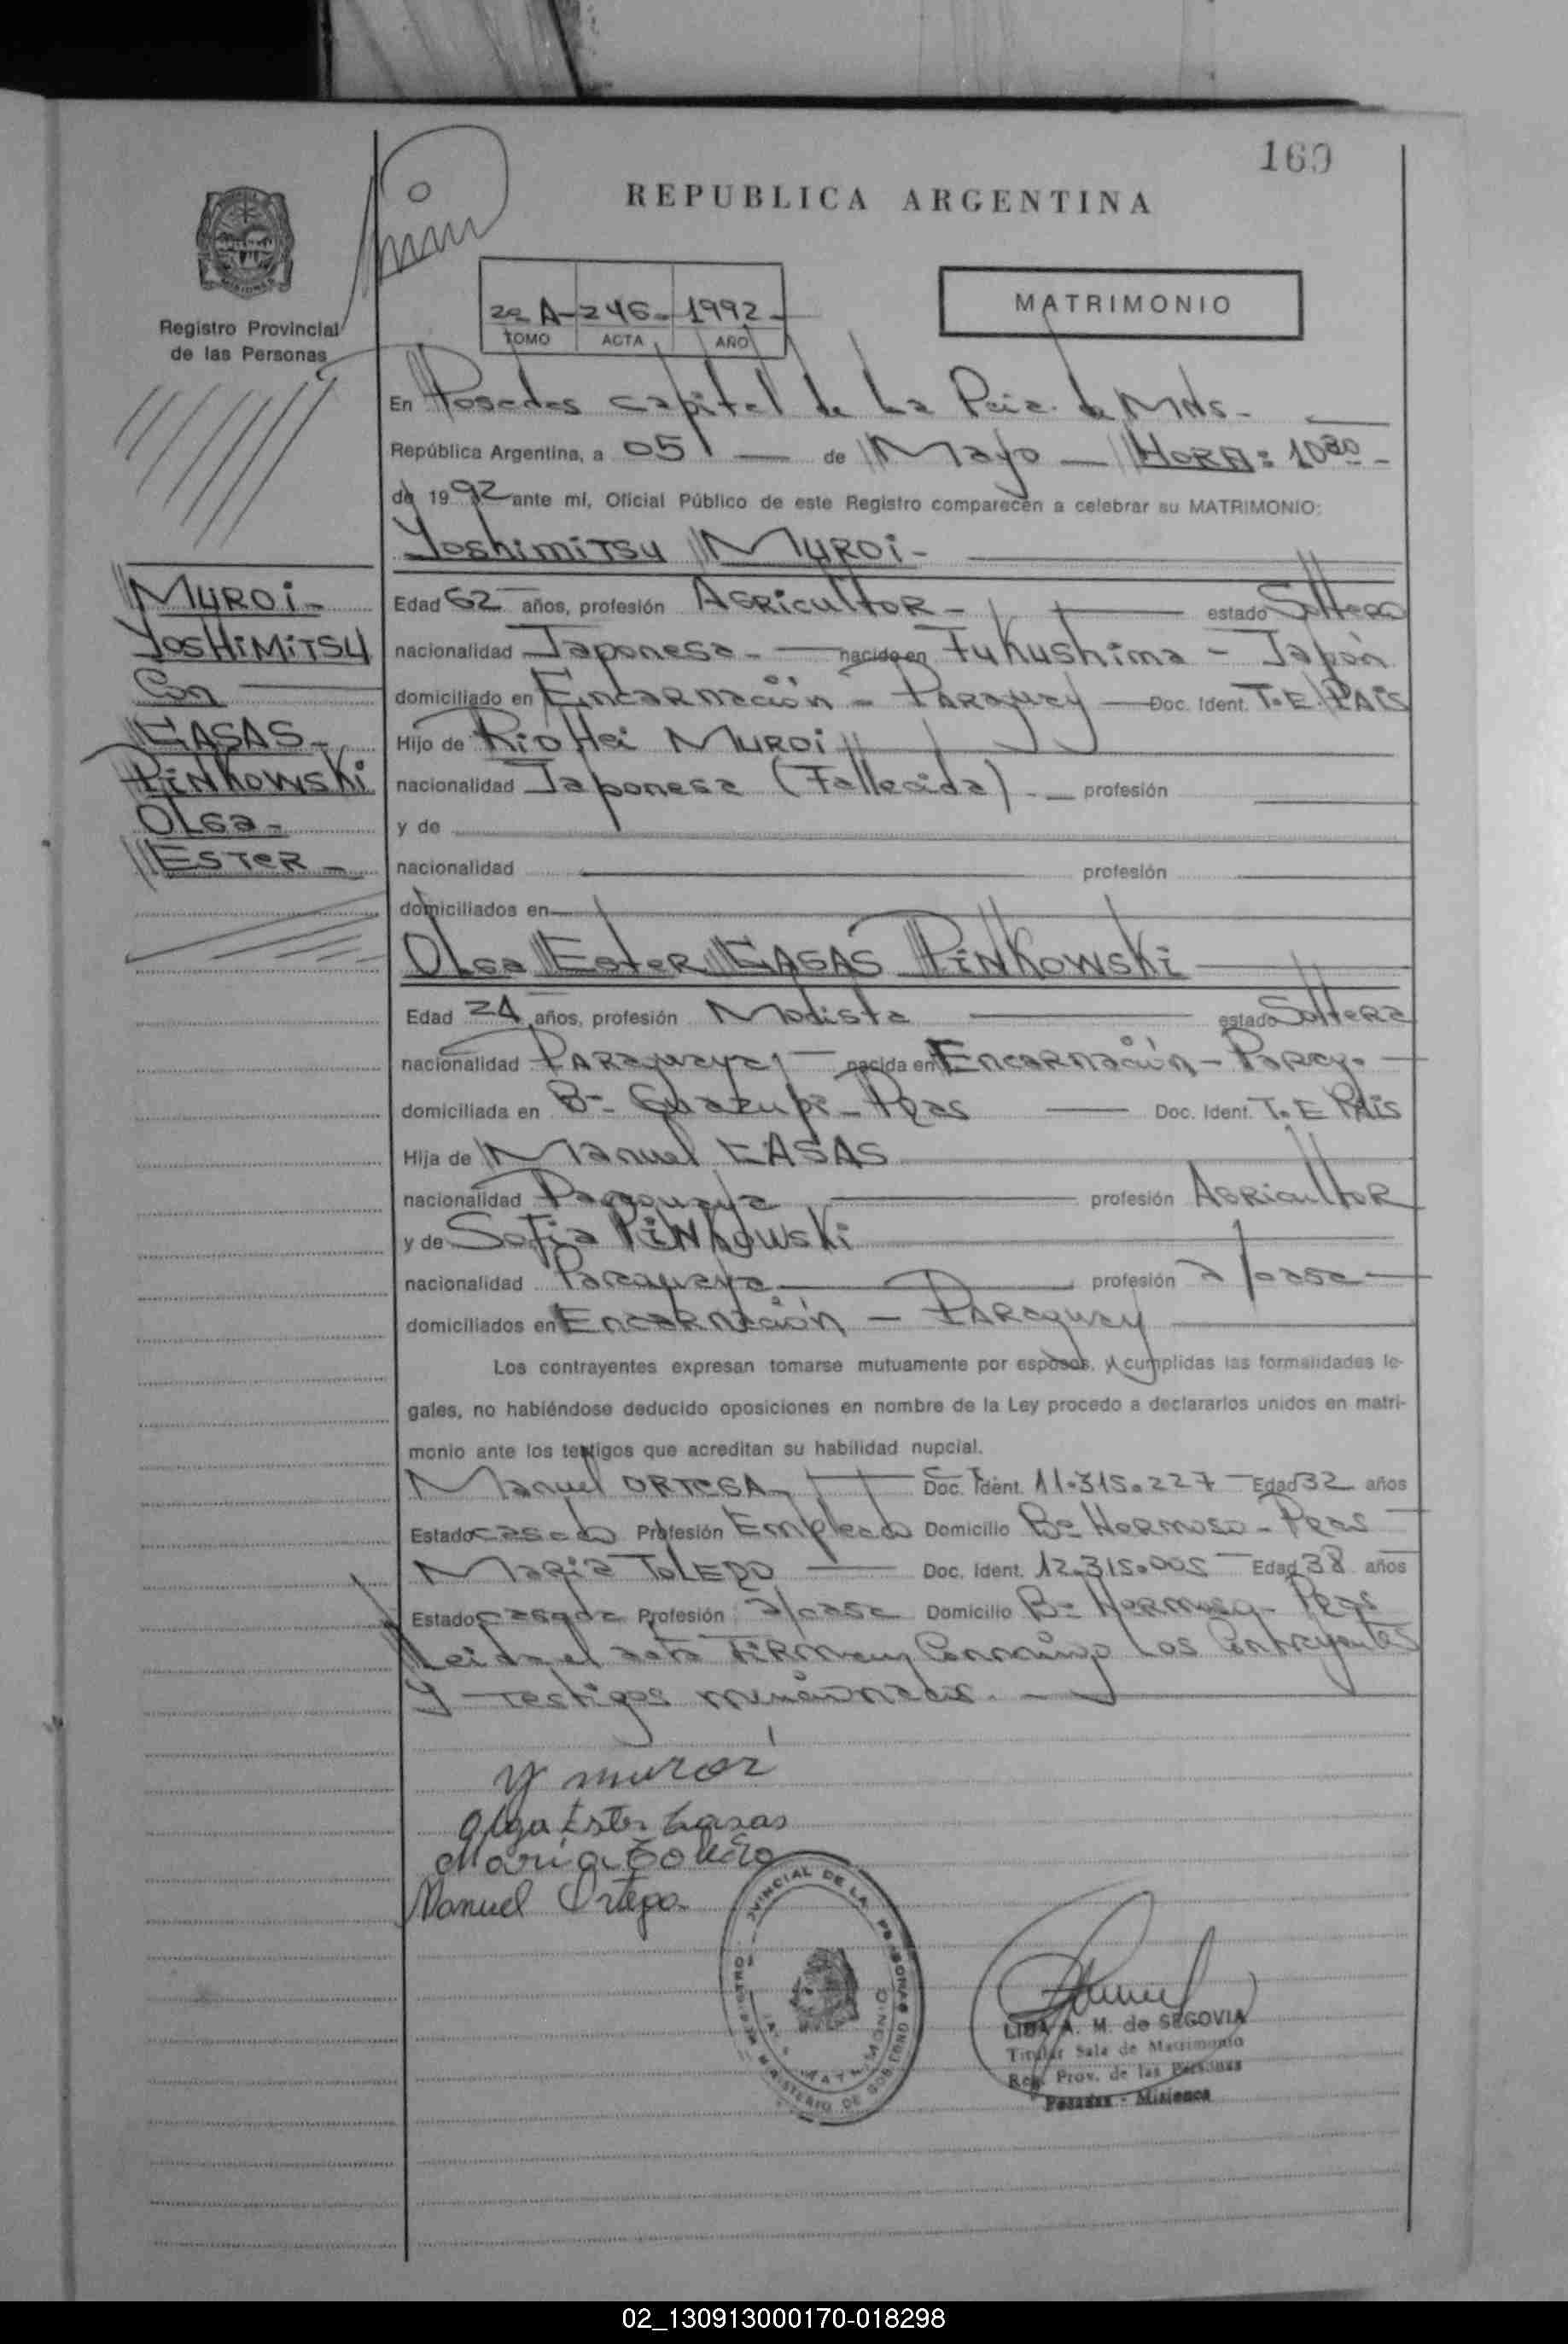 169
REPUBLICA ARGENTINA
Registro Provincial
de las Personas
2ª A - 246 - 1992 -
TOMO ACTA AÑO
MATRIMONIO
En Posadas capital de La Pcia. de Mnes -
República Argentina, a 05 de Mayo HORA: 10 30 -
de 1992 ante mi, Oficial Público de este Registro comparecen a celebrar su MATRIMONIO:
Yoshimitsu MUROi -
MUROi -
YOSHIMITSU
Con
CASAS -
PINKOWSKi
OLGA -
ESTER -
Edad 62 años, profesión AGRicultOR - estado Soltero
nacionalidad Japonesa - nacido en Fukushima - Japón
domiciliado en Encarnación - PARAguay Doc. Ident. T.E. PAIS
Hijo de RioHei MUROi
nacionalidad Japonesa (Fallecida) - profesión
y de
nacionalidad profesión
domiciliados en
OLga Ester CASAS PINKOWSKi
Edad 24 años, profesión Modista estado SolteRA
nacionalidad PARAguaya nacida en Encarnación - Paray.
domiciliada en Bº Guazupi - Pdas Doc. Ident. T.E PAis
Hija de Manuel CASAS
nacionalidad Paraguaya profesión AGRicultOR
y de Sofia PINKOWSKi
nacionalidad Paraguaya profesión s/casa
domiciliados en Encarnación - PARAguay
Los contrayentes expresan tomarse mutuamente por esposos, y cumplidas las formalidades le-
gales, no habiéndose deducido oposiciones en nombre de la Ley procedo a declararlos unidos en matri-
monio ante los testigos que acreditan su habilidad nupcial.
Manuel ORTEGA Doc. Ident. 11.315.227 Edad 32 años
Estado casado Profesión Empleado Domicilio Bº Hermoso - Pdas
MARia TOLEDO Doc. Ident. 12.315.005 Edad 38 años
Estado casada Profesión s/casa Domicilio Bº Hermoso - Pdas
Leida el acta FiRMan Conmigo Los Contrayentes
y testigos mencionados.
Y muroi
Olga Ester Casas
Maria Toledo
Manuel Ortega
REGISTRO PROVINCIAL DE LAS PERSONAS
MINISTERIO DE GOBIERNO
MATRIMONIO
LIDA A. M. de SEGOVIA
Titular Sala de Matrimonio
Reg. Prov. de las Personas
Posadas - Misiones
02_130913000170-018298